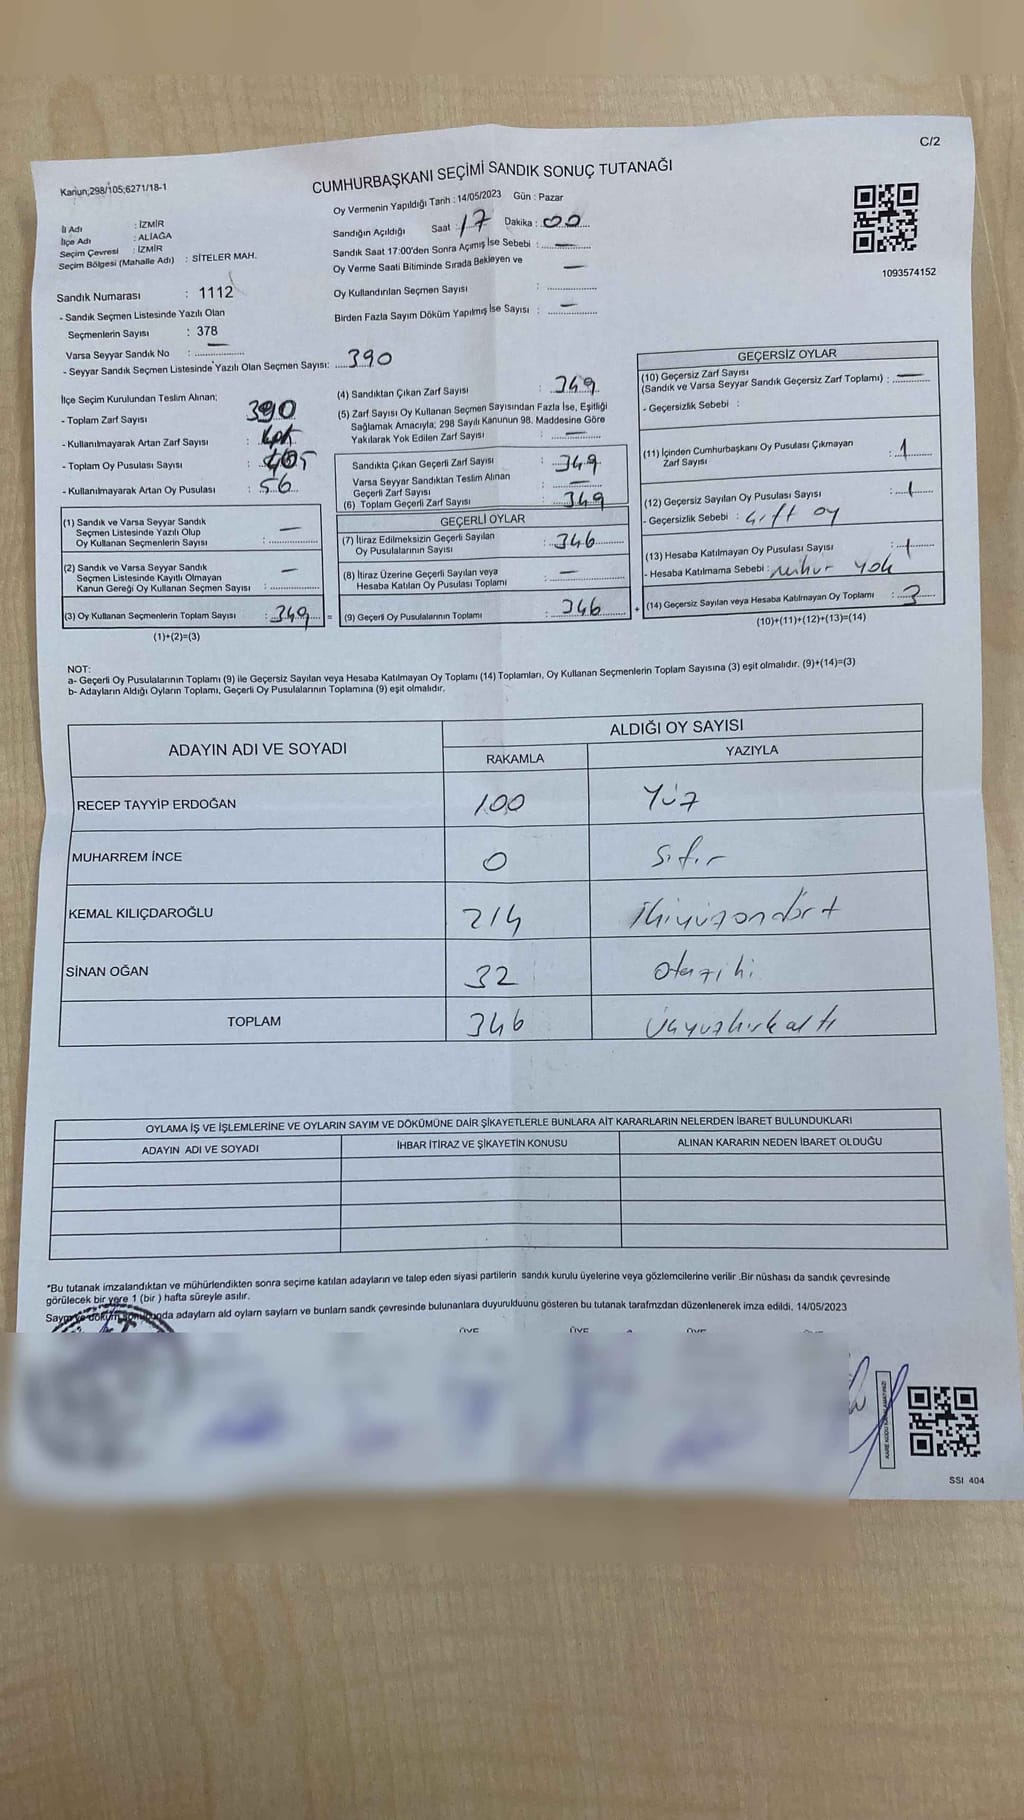 C/2
Kanun;298/105;6271/18-1
CUMHURBAŞKANI SEÇİMİ SANDIK SONUÇ TUTANAĞI
Oy Vermenin Yapıldığı Tarih : 14/05/2023 Gün : Pazar
İl Adı : İZMİR
İlçe Adı : ALİAĞA
Seçim Çevresi : İZMİR
Seçim Bölgesi (Mahalle Adı) : SİTELER MAH.
Sandığın Açıldığı Saat : 17 Dakika : 00
Sandık Saat 17:00'den Sonra Açımış İse Sebebi : —
Oy Verme Saati Bitiminde Sırada Bekleyen ve —
Oy Kullandırılan Seçmen Sayısı :
Birden Fazla Sayım Döküm Yapılmış İse Sayısı : —
1093574152
Sandık Numarası : 1112
- Sandık Seçmen Listesinde Yazılı Olan
Seçmenlerin Sayısı : 378
Varsa Seyyar Sandık No : —
- Seyyar Sandık Seçmen Listesinde Yazılı Olan Seçmen Sayısı: 390
İlçe Seçim Kurulundan Teslim Alınan;
- Toplam Zarf Sayısı 390
- Kullanılmayarak Artan Zarf Sayısı :
- Toplam Oy Pusulası Sayısı : 405
- Kullanılmayarak Artan Oy Pusulası : 56
(1) Sandık ve Varsa Seyyar Sandık
Seçmen Listesinde Yazılı Olup
Oy Kullanan Seçmenlerin Sayısı : —
(2) Sandık ve Varsa Seyyar Sandık
Seçmen Listesinde Kayıtlı Olmayan
Kanun Gereği Oy Kullanan Seçmen Sayısı : —
(3) Oy Kullanan Seçmenlerin Toplam Sayısı : 349 =
(1)+(2)=(3)
(4) Sandıktan Çıkan Zarf Sayısı : 349
(5) Zarf Sayısı Oy Kullanan Seçmen Sayısından Fazla İse, Eşitliği
Sağlamak Amacıyla; 298 Sayılı Kanunun 98. Maddesine Göre
Yakılarak Yok Edilen Zarf Sayısı : —
Sandıkta Çıkan Geçerli Zarf Sayısı : 349
Varsa Seyyar Sandıktan Teslim Alınan
Geçerli Zarf Sayısı : —
(6) Toplam Geçerli Zarf Sayısı : 349
GEÇERLİ OYLAR
(7) İtiraz Edilmeksizin Geçerli Sayılan
Oy Pusulalarının Sayısı : 346
(8) İtiraz Üzerine Geçerli Sayılan veya
Hesaba Katılan Oy Pusulası Toplamı : —
(9) Geçerli Oy Pusulalarının Toplamı : 346 +
GEÇERSİZ OYLAR
(10) Geçersiz Zarf Sayısı
(Sandık ve Varsa Seyyar Sandık Geçersiz Zarf Toplamı) : —
- Geçersizlik Sebebi :
(11) İçinden Cumhurbaşkanı Oy Pusulası Çıkmayan
Zarf Sayısı : 1
(12) Geçersiz Sayılan Oy Pusulası Sayısı : 1
- Geçersizlik Sebebi : Çift oy
(13) Hesaba Katılmayan Oy Pusulası Sayısı : 1
- Hesaba Katılmama Sebebi : mühür yok
(14) Geçersiz Sayılan veya Hesaba Katılmayan Oy Toplamı : 3
(10)+(11)+(12)+(13)=(14)
NOT:
a- Geçerli Oy Pusulalarının Toplamı (9) ile Geçersiz Sayılan veya Hesaba Katılmayan Oy Toplamı (14) Toplamları, Oy Kullanan Seçmenlerin Toplam Sayısına (3) eşit olmalıdır. (9)+(14)=(3)
b- Adayların Aldığı Oyların Toplamı, Geçerli Oy Pusulalarının Toplamına (9) eşit olmalıdır.
ADAYIN ADI VE SOYADI
ALDIĞI OY SAYISI
RAKAMLA YAZIYLA
RECEP TAYYİP ERDOĞAN 100 Yüz
MUHARREM İNCE 0 Sıfır
KEMAL KILIÇDAROĞLU 214 İkiyüzondört
SİNAN OĞAN 32 Otuziki
TOPLAM 346 üçyüzkırkaltı
OYLAMA İŞ VE İŞLEMLERİNE VE OYLARIN SAYIM VE DÖKÜMÜNE DAİR ŞİKAYETLERLE BUNLARA AİT KARARLARIN NELERDEN İBARET BULUNDUKLARI
ADAYIN ADI VE SOYADI İHBAR İTİRAZ VE ŞİKAYETİN KONUSU ALINAN KARARIN NEDEN İBARET OLDUĞU
*Bu tutanak imzalandıktan ve mühürlendikten sonra seçime katılan adayların ve talep eden siyasi partilerin sandık kurulu üyelerine veya gözlemcilerine verilir .Bir nüshası da sandık çevresinde
görülecek bir yere 1 (bir ) hafta süreyle asılır.
Sayım ve döküm sonucunda adayların ald oyların sayların ve bunların sandk çevresinde bulunanlara duyurulduunu gösteren bu tutanak tarafmzdan düzenlenerek imza edildi. 14/05/2023
ÜYE ÜYE ÜYE
SSI 404